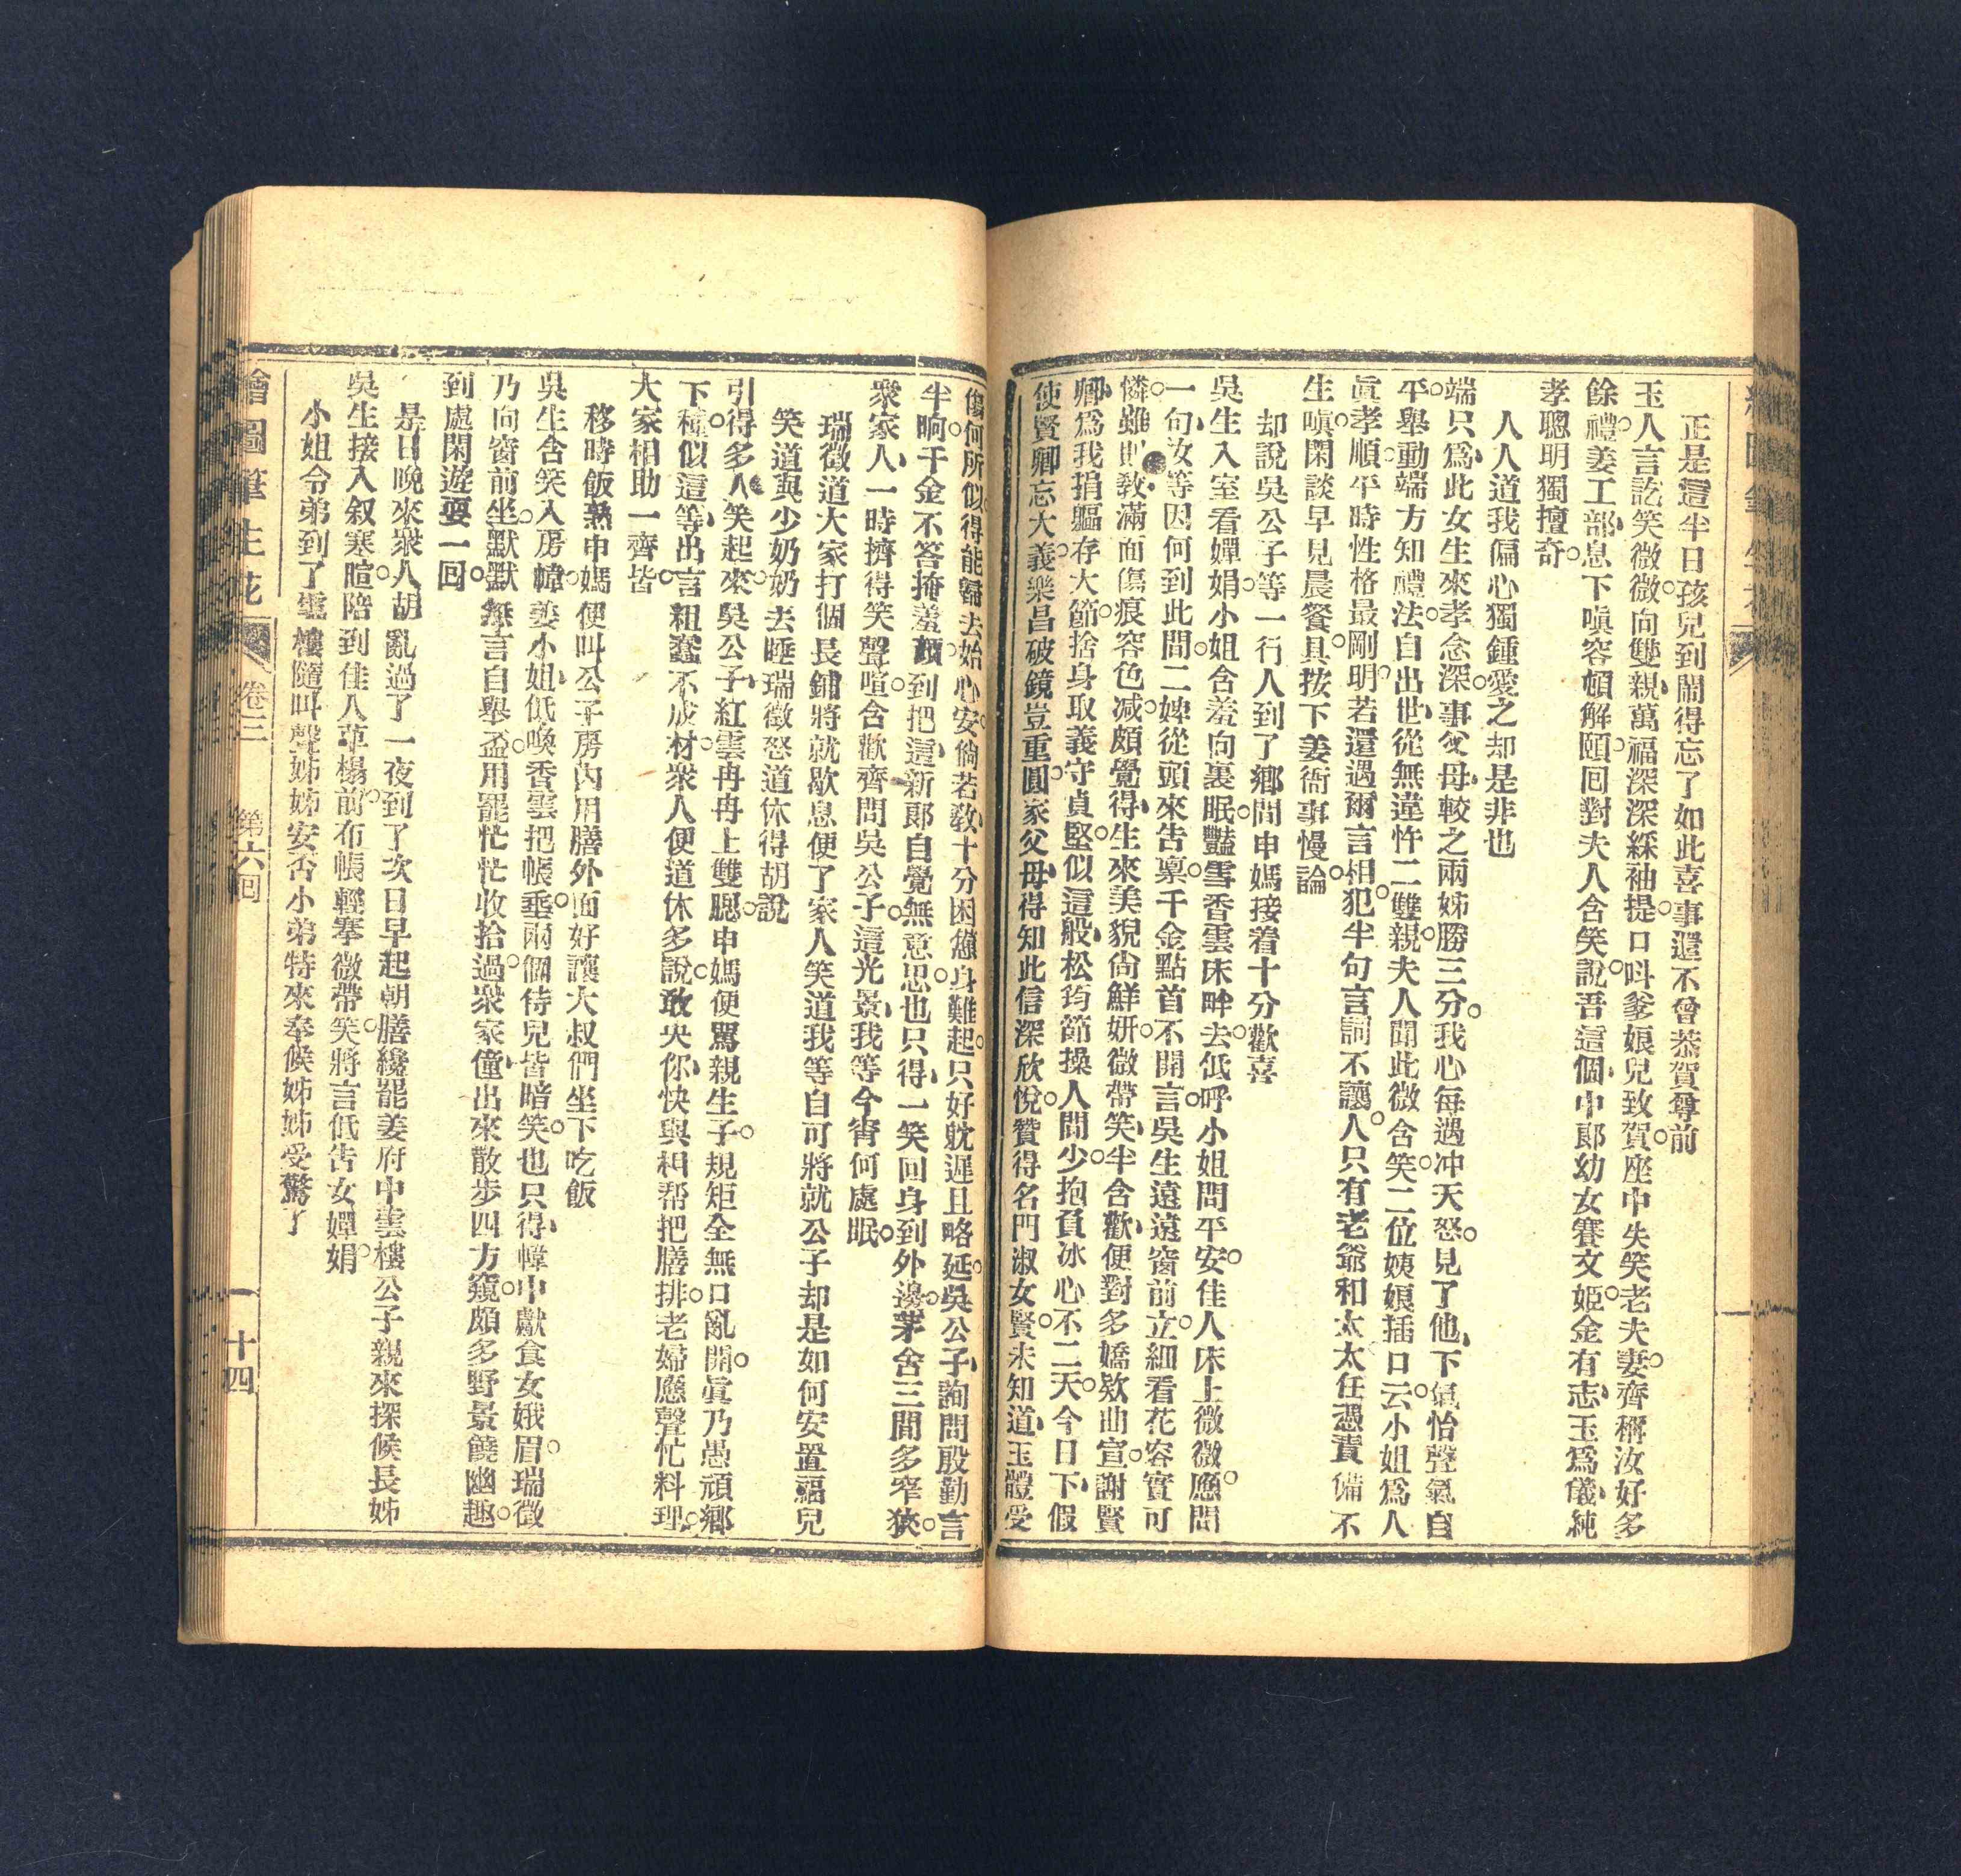 正是這半日孩兒到鬧得忘了如此喜事還不曾恭賀尊前
玉人言訖笑微微向雙親萬福深深綵袖提口呌爹娘兒致賀座中失笑老夫妻齊稱汝好多
餘禮姜工部息下嗔容頓解頤回對夫人含笑說吾這個中郎幼女賽文姬金有志玉爲儀純
孝聰明獨擅奇
人人道我偏心獨鍾愛之却是非也
端只爲此女生來孝念深事父母較之兩姊勝三分我心每遇冲天怒見了他下氣怡聲氣自
平舉動端方知禮法自出世從無違忤二雙親夫人聞此微含笑二位姨娘插口云小姐爲人
眞孝順平時性格最剛明若還遇爾言相犯半句言詞不讓人只有老爺和太太任憑責備不
生嗔閑談早見晨餐具按下姜衙事慢論
却說吳公子等一行人到了鄉間申媽接着十分歡喜
吳生入室看嬋娟小姐含羞向裏眠豔雪香雲床畔去低呼小姐問平安佳人床上微微應問
一句汝等因何到此間二婢從頭來告稟千金點首不開言吳生遠遠窗前立細看花容實可
憐雖則敎滿面傷痕容色减頗覺得生來美貌尙鮮妍微帶笑半含歡便對多嬌欵曲宣謝賢
卿爲我捐軀存大節捨身取義守貞堅似這般松筠節操人間少抱負冰心不二天今日下假
使賢卿忘大義樂昌破鏡豈重圓家父母得知此信深欣悅贊得名門淑女賢未知道玉體受
傷何所似得能歸去始心安倘若敎十分困憊身難起只好躭遲且略延吳公子詢問殷勤言
半晌千金不答掩羞顏到把這新郞自覺無意思也只得一笑回身到外邊茅舍三間多窄狹
衆家人一時擠得笑聲喧含歡齊問吳公子這光景我等今宵何處眠
瑞徵道大家打個長鋪將就歇息便了家人笑道我等自可將就公子却是如何安置福兒
笑道與少奶奶去睡瑞徵怒道休得胡說
引得多人笑起來吳公子紅雲冉冉上雙腮申媽便罵親生子規矩全無口亂開眞乃愚頑鄉
下種似這等出言粗蠢不成材衆人便道休多說敢央你快與相帮把膳排老婦應聲忙料理
大家相助一齊皆
移時飯熟申媽便叫公子房內用膳外面好讓大叔們坐下吃飯
吳生含笑入房幃姜小姐低喚香雲把帳垂兩個侍兒皆暗笑也只得幃中獻食女娥眉瑞徵
乃向窗前坐默默無言自舉盃用罷忙忙收拾過衆家僮出來散步四方窺頗多野景饒幽趣
到處閑遊耍一回
是日晚來衆人胡亂過了一夜到了次日早起朝膳纔罷姜府中雲樓公子親來探候長姊
吳生接入叙寒暄陪到佳人草榻前布帳輕搴微帶笑將言低告女嬋娟
小姐令弟到了雲樓隨叫聲姊姊安否小弟特來奉候姊姊受驚了
繪圖筆生花 卷三 第六回 十四